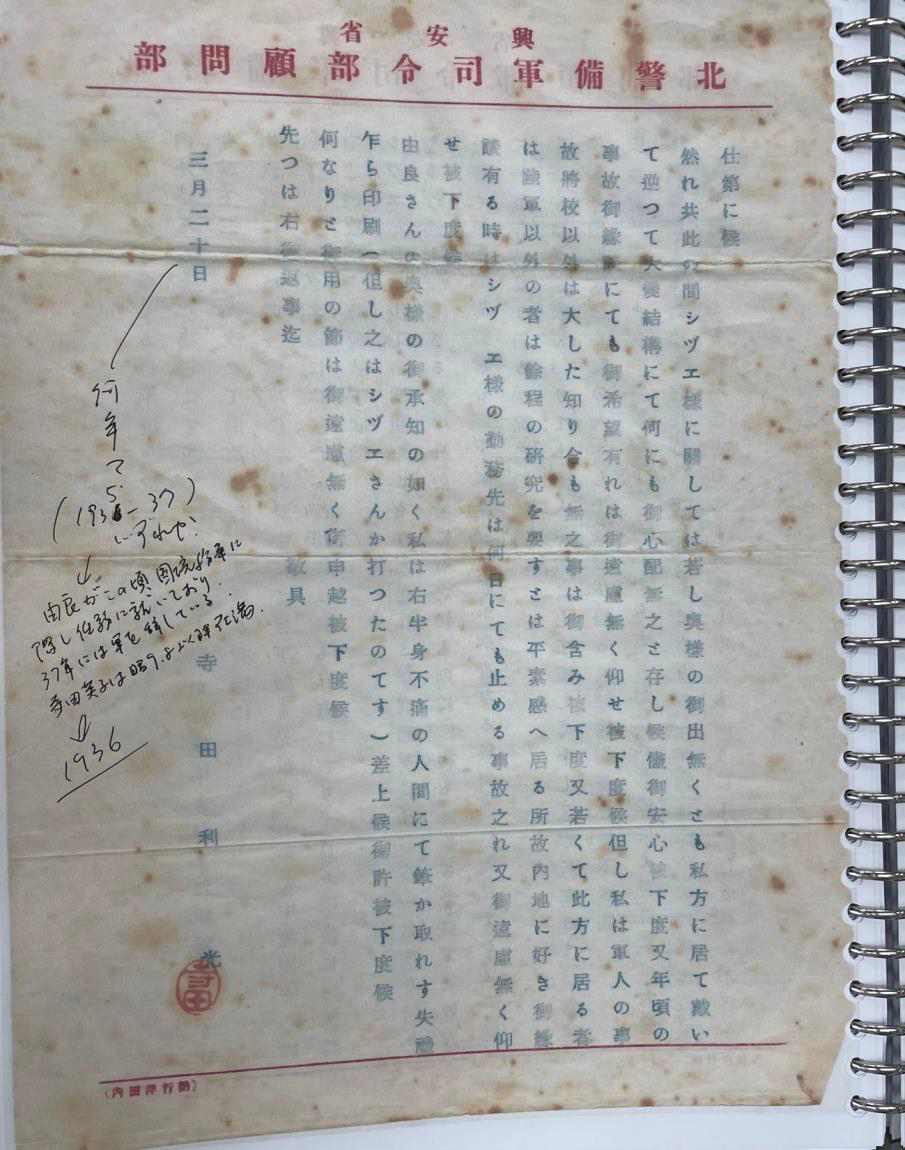 興安省
北警備軍司令部顧問部
仕第に候
然れ共此の間シヅエ様に關しては若し奥様の御出無くとも私方に居て戴い
て逆つて大變結構にて何にも御心配無之と存し候儘御安心被下度又年頃の
事故御縁談にても御希望有れは御遠慮無く仰せ被下度候但し私は軍人の事
故將校以外は大した知り合も無之事は御含み被下度又若くて此方に居る者
は陸軍以外の者は餘程の研究を要すとは平素感へ居る所故内地に好き御縁
談有る時はシヅエ様の勤務先は何日にても止める事故之れ又御遠慮無く仰
せ被下度候
由良さんの奥様の御承知の如く私は右半身不痛の人間にて筆か取れす失禮
乍ら印刷(但し之はシヅエさんか打つたのてす)差上候御許被下度候
何なりと御用の節は御遠慮無く御申越被下度候
先つは右御返事迄
敬具
三月二十日
寺田利光
寺田
何年？
(1935-37)
いずれか？
↓
由良がこの頃、
隠し任務に就いており
37年には軍を辞している。
寺田
↓
1936
(内田洋行納)